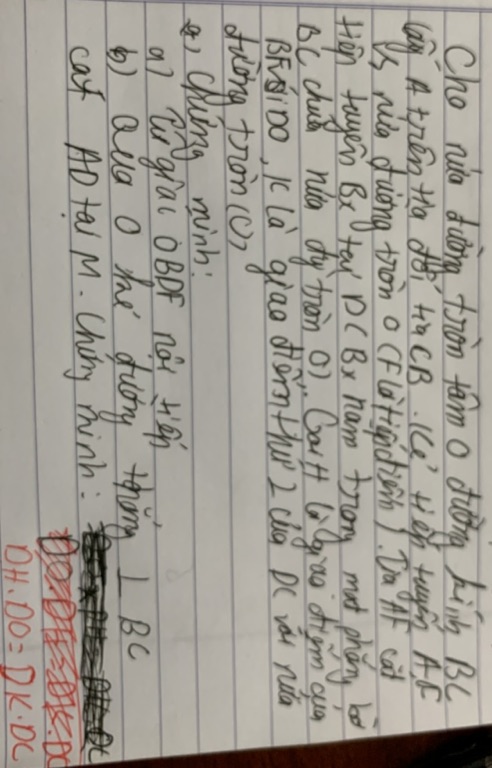 Cho nửa đường tròn tâm O đường kính BC
lấy A trên tia đối tia CB. Kẻ tiếp tuyến AF
nửa đường tròn O (F là tiếp điểm). Tia AF cắt
tiếp tuyến Bx tại D (Bx nằm trong mặt phẳng bờ
BC chứa nửa đg tròn O). Gọi H là giao điểm của
BF với DO, K là giao điểm thứ 2 của DC với nửa
đường tròn (O)
Chứng minh:
a) Tứ giác OBDF nội tiếp
b) Qua O kẻ đường thẳng ⊥ BC
cắt AD tại M. Chứng minh:
DH.DO = DK.DC